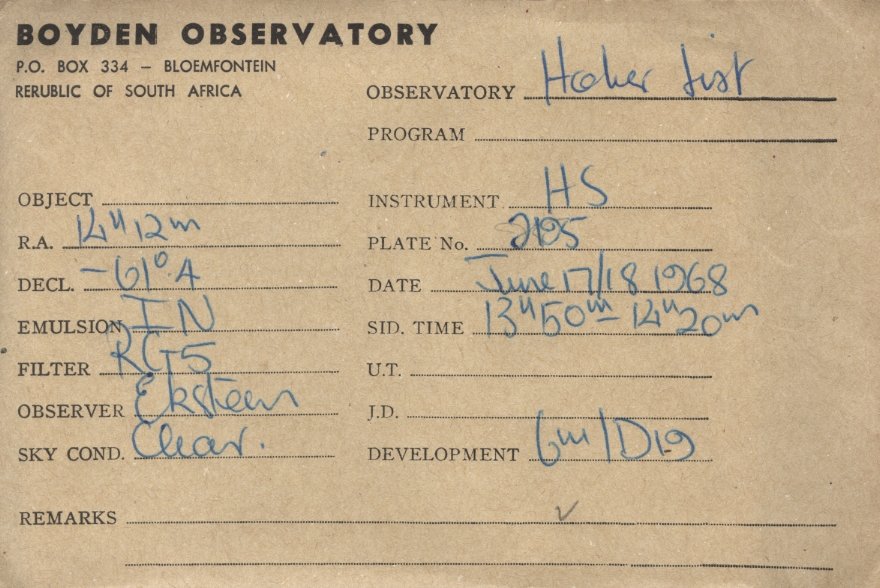 BOYDEN OBSERVATORY
P.O. BOX 334 – BLOEMFONTEIN
RERUBLIC OF SOUTH AFRICA
OBSERVATORY Hoher List
PROGRAM
OBJECT
INSTRUMENT HS
R.A. 14h 12m
PLATE No. 2195
DECL. -61°.4
DATE June 17/18 1968
EMULSION IN
SID. TIME 13h50m - 14h20m
FILTER RG5
U.T.
OBSERVER Eksteen
J.D.
SKY COND. Clear.
DEVELOPMENT 6m/D19
REMARKS ✓